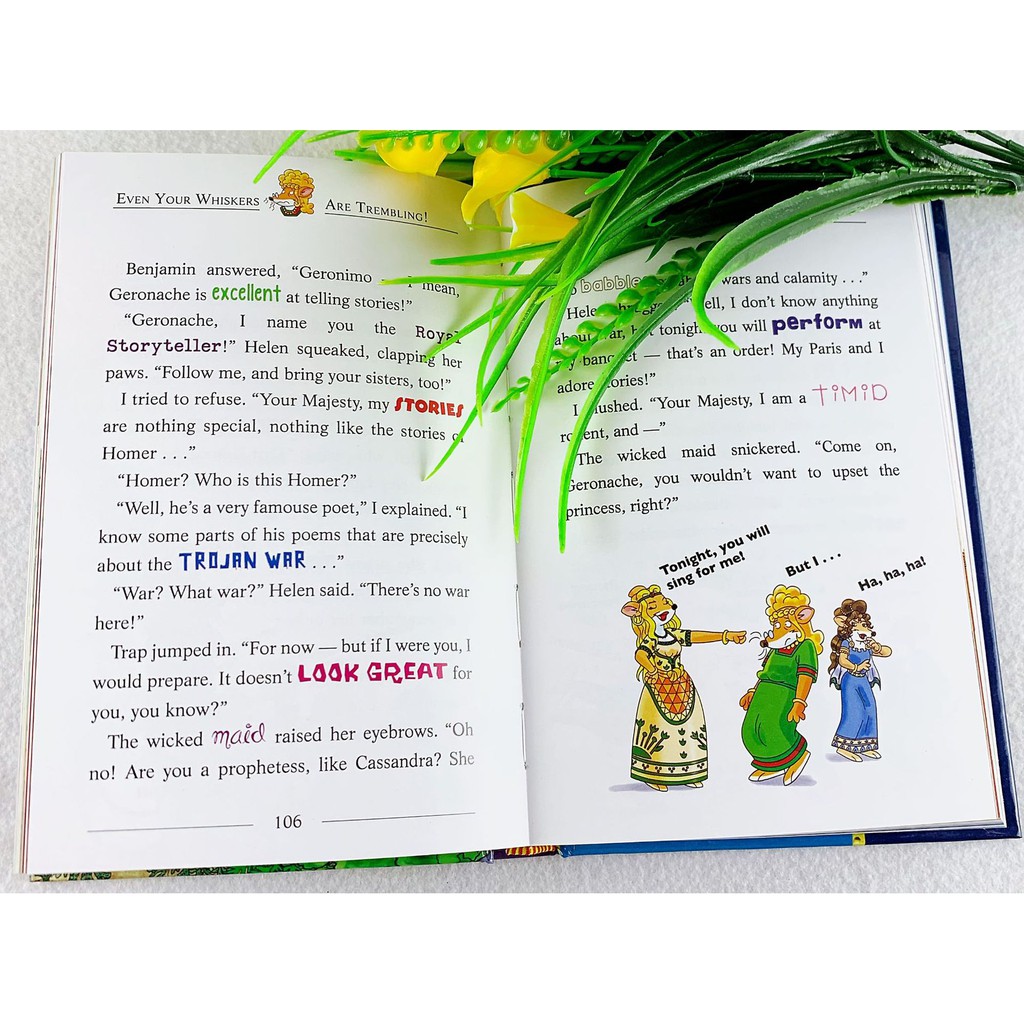 EVEN YOUR WHISKERS ARE TREMBLING!
Benjamin answered, “Geronimo — I mean,
Geronache is excellent at telling stories!”
“Geronache, I name you the Royal
Storyteller!” Helen squeaked, clapping her
paws. “Follow me, and bring your sisters, too!”
I tried to refuse. “Your Majesty, my STORIES
are nothing special, nothing like the stories of
Homer . . .”
“Homer? Who is this Homer?”
“Well, he’s a very famouse poet,” I explained. “I
know some parts of his poems that are precisely
about the TROJAN WAR . . .”
“War? What war?” Helen said. “There’s no war
here!”
Trap jumped in. “For now — but if I were you, I
would prepare. It doesn’t LOOK GREAT for
you, you know?”
The wicked maid raised her eyebrows. “Oh
no! Are you a prophetess, like Cassandra? She
106
wars and calamity . . .”
I don’t know anything
about war, but tonight you will perform at
my banquet — that’s an order! My Paris and I
adore stories!”
I blushed. “Your Majesty, I am a TiMiD
rodent, and —”
The wicked maid snickered. “Come on,
Geronache, you wouldn’t want to upset the
princess, right?”
Tonight, you will
sing for me!
But I . . .
Ha, ha, ha!